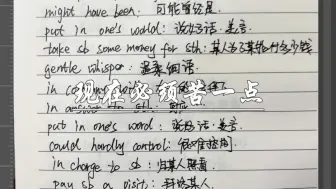 might have been: 可能曾经是
put in one's world: 说好话·美言
take sb some money for sth: 某人为了某物付多少钱
gentle whisper: 温柔细语
in
现在必须苦一点
in answer to sth:
put in one's word: 说好话·美言
could hardly control: 很难控制
in charge to sb: 由某人照看
pay sb a visit: 拜访某人